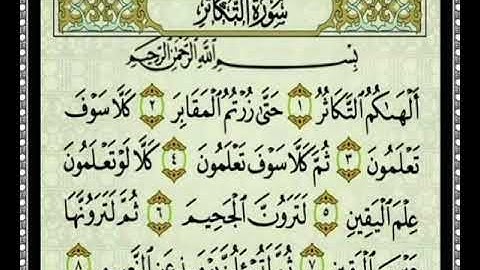 سُورَةُ التَّكَاثُرِ
بِسْمِ اللَّهِ الرَّحْمَٰنِ الرَّحِيمِ
أَلْهَاكُمُ التَّكَاثُرُ ١ حَتَّىٰ زُرْتُمُ الْمَقَابِرَ ٢ كَلَّا سَوْفَ
تَعْلَمُونَ ٣ ثُمَّ كَلَّا سَوْفَ تَعْلَمُونَ ٤ كَلَّا لَوْ تَعْلَمُونَ
عِلْمَ الْيَقِينِ ٥ لَتَرَوُنَّ الْجَحِيمَ ٦ ثُمَّ لَتَرَوُنَّهَا
عَيْنَ الْيَقِينِ ٧ ثُمَّ لَتُسْأَلُنَّ يَوْمَئِذٍ عَنِ النَّعِيمِ ٨